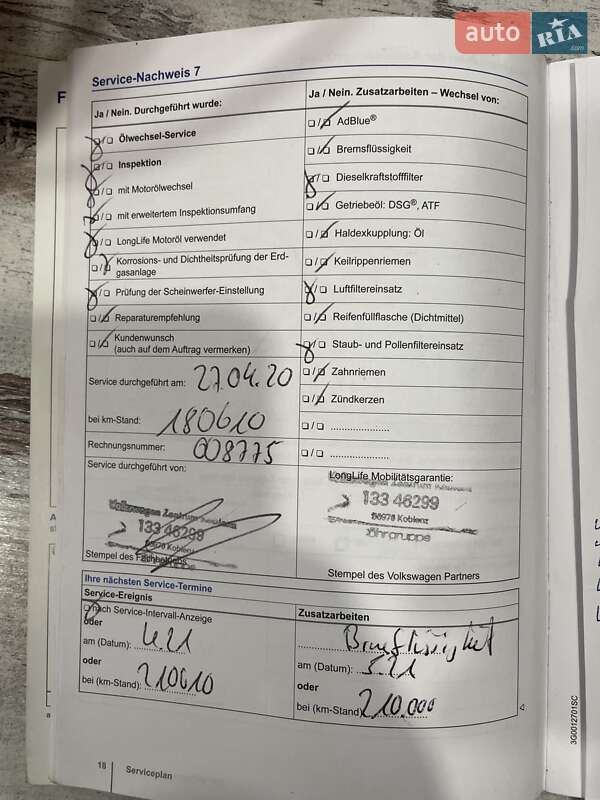 auto RIA.com
Service-Nachweis 7
Ja / Nein. Durchgeführt wurde:
Ölwechsel-Service
Inspektion
mit Motorölwechsel
mit erweitertem Inspektionsumfang
LongLife Motoröl verwendet
Korrosions- und Dichtheitsprüfung der Erd-
gasanlage
Prüfung der Scheinwerfer-Einstellung
Reparaturempfehlung
Kundenwunsch
(auch auf dem Auftrag vermerken)
Service durchgeführt am: 27.04.20
bei km-Stand: 180610
Rechnungsnummer: 608775
Service durchgeführt von:
Volkswagen Zentrum Koblenz
133 46299
56070 Koblenz
Stempel des Fachbetriebs
Ja / Nein. Zusatzarbeiten – Wechsel von:
AdBlue®
Bremsflüssigkeit
Dieselkraftstofffilter
Getriebeöl: DSG®, ATF
Haldexkupplung: Öl
Keilrippenriemen
Luftfiltereinsatz
Reifenfüllflasche (Dichtmittel)
Staub- und Pollenfiltereinsatz
Zahnriemen
Zündkerzen
LongLife Mobilitätsgarantie:
133 46299
56070 Koblenz
Löhrgruppe
Stempel des Volkswagen Partners
Ihre nächsten Service-Termine
Service-Ereignis
nach Service-Intervall-Anzeige
oder
am (Datum): 4.21
oder
bei (km-Stand): 210610
Zusatzarbeiten
Bremsflüssigkeit
am (Datum): 5.21
oder
bei (km-Stand) 210.000
18
Serviceplan
3G0012701SC